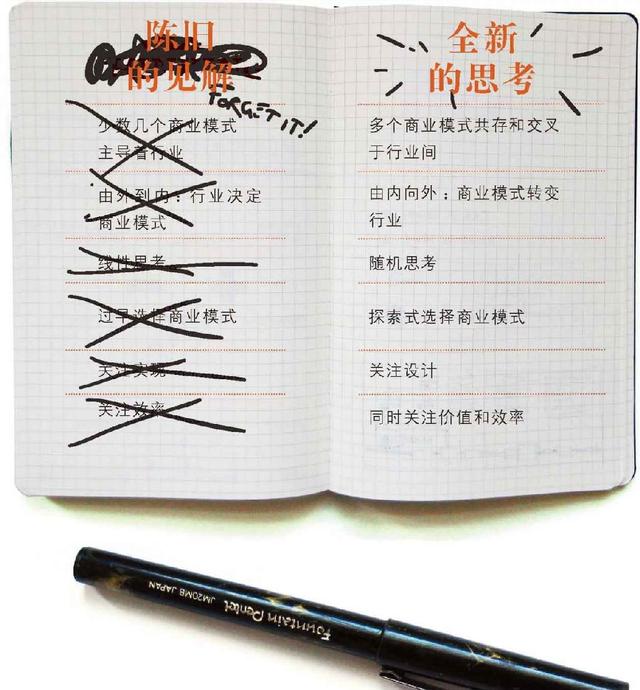 陈旧
的见解
FORGET IT!
少数几个商业模式
主导着行业
由外到内：行业决定
商业模式
线性思考
过早选择商业模式
关注实现
关注效率
全新
的思考
多个商业模式共存和交叉
于行业间
由内向外：商业模式转变
行业
随机思考
探索式选择商业模式
关注设计
同时关注价值和效率
Fountain Pentel
JM20MB JAPAN